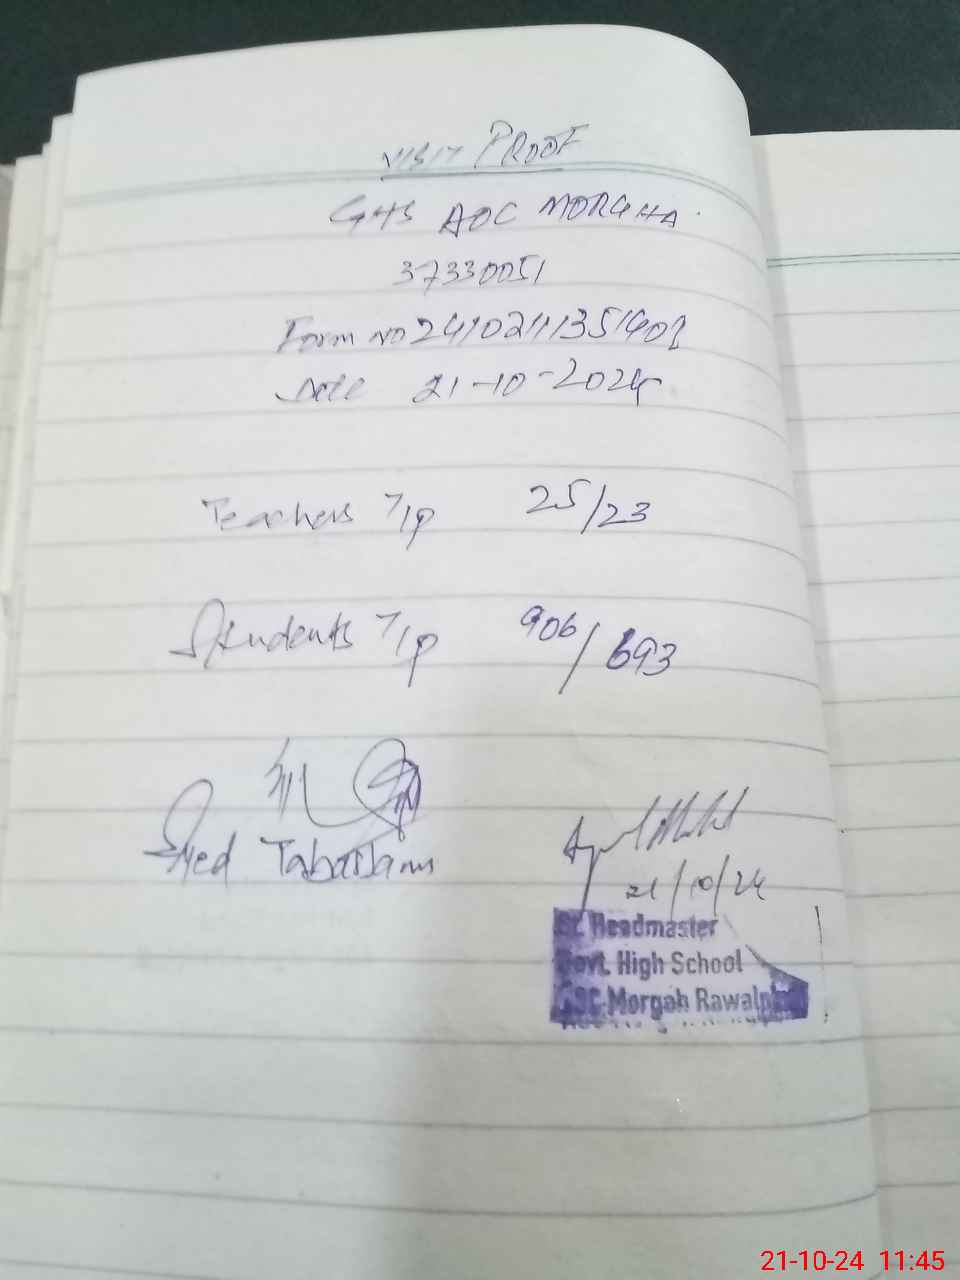 VISIT PROOF
GHS AOC MORGHA
37330051
Form no 241021135140
Date 21-10-2024
Teachers T/P 25/23
Students T/P 906/693
Syed
21/10/24
Sr. Headmaster
Govt. High School
AOC Morgah Rawalpindi
21-10-24 11:45